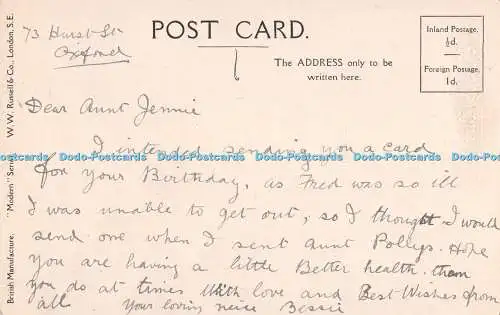 73 Hurst St
Oxford
POST CARD.
The ADDRESS only to be
written here.
Inland Postage,
½d.
Foreign Postage,
1d.
W. W. Russell & Co., London, S.E.
"Modern" Series
British Manufacture.
Dear Aunt Jennie
I intended sending you a card
Dodo-Postcards Dodo-Postcards Dodo-Postcards Dodo-Postcards Dodo-Postcards
for your Birthday, as Fred was so ill
I was unable to get out, so I thought I would
send one when I sent Aunt Pollys. Hope
you are having a little Better health. than
you do at times With love and Best Wishes from
all Your loving neice Bessie